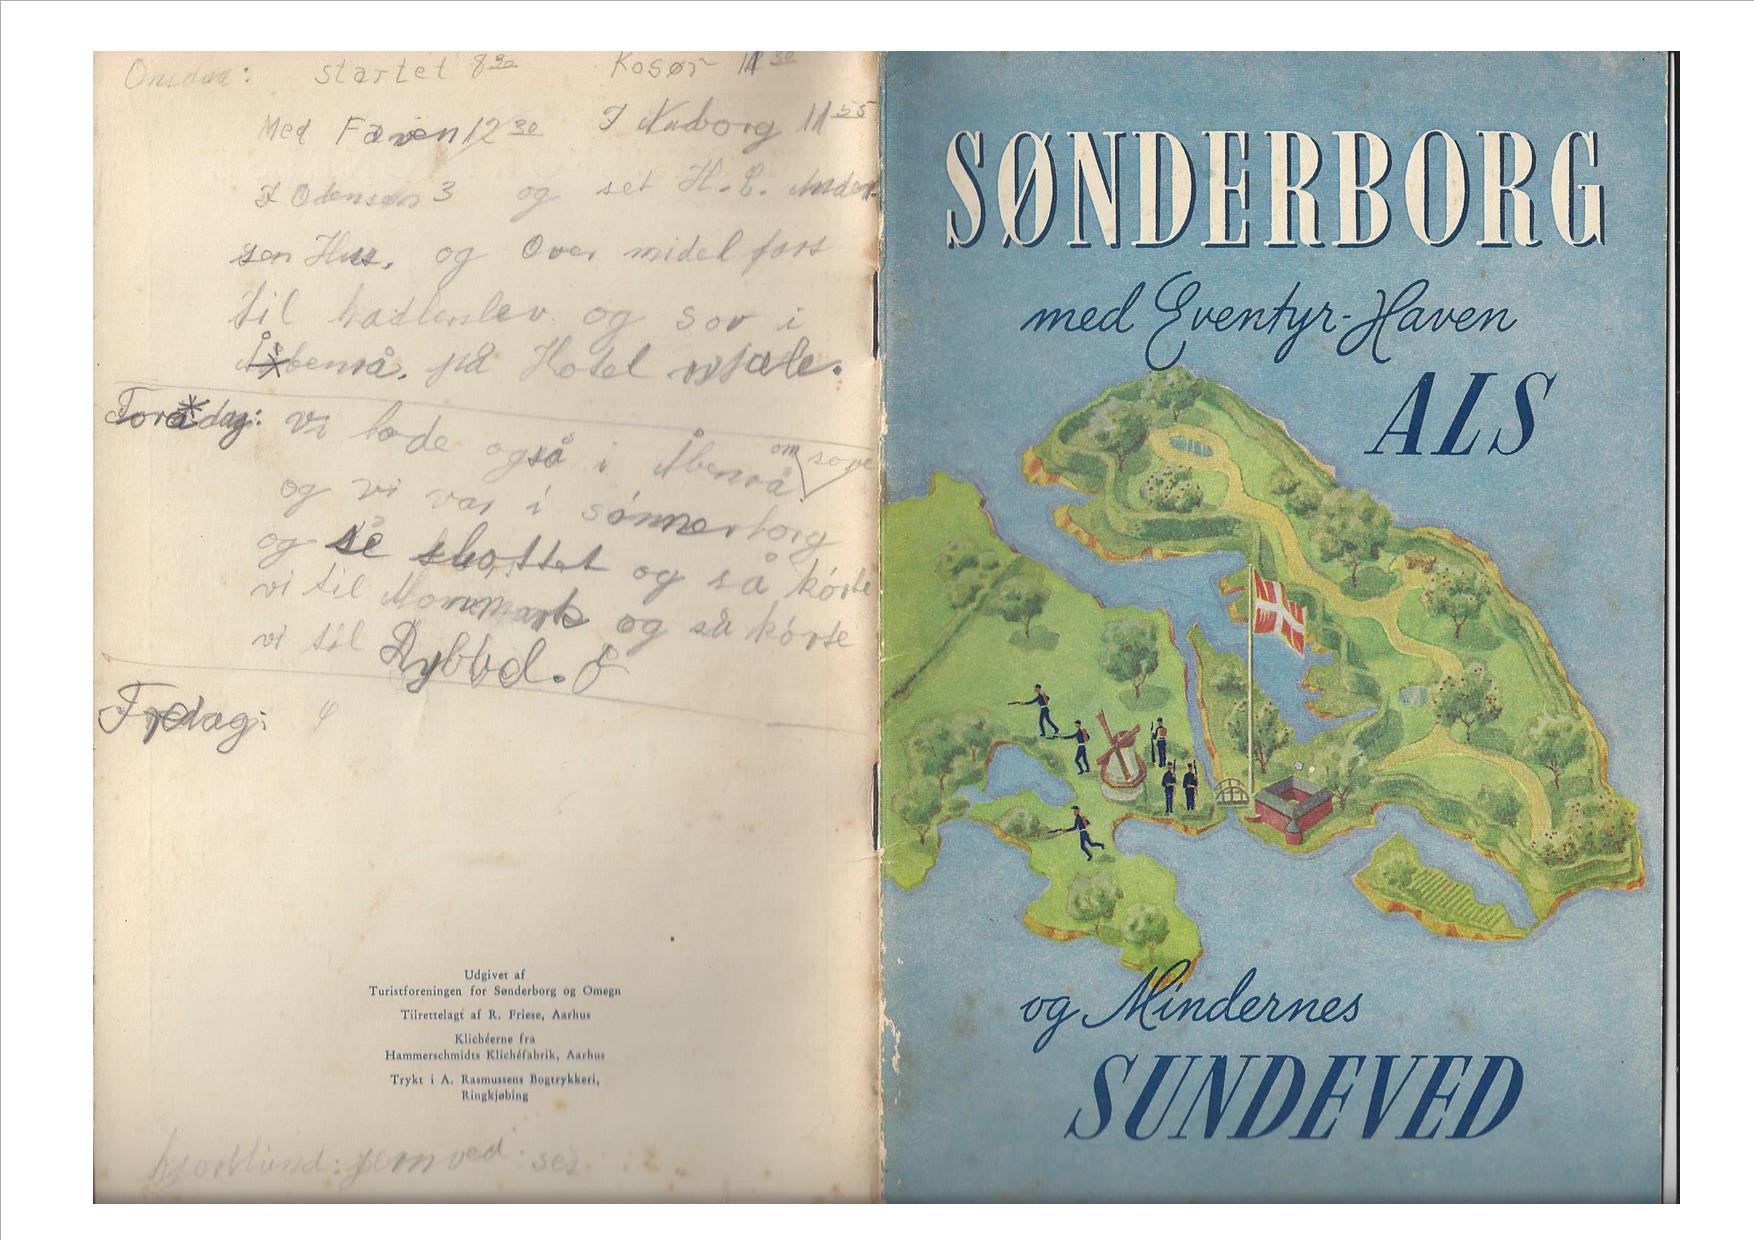 Onsdag: startet 8 30 Kosør 11 30
Med Færen 12 30 I Nuborg 11 55
I Odense 3 og set H. C. Ander-
sen Hus, og Over midel fart
til hadlerslev og sov i
Åbenrå. på Hotel
Torsdag: vi lode også i Åbenrå om sove
og vi var i sónnerborg
og så slottet og så kórte
vi til Mommark og så kórte
vi til Dybbøl.
Fredag:
ved
Udgivet af
Turistforeningen for Sønderborg og Omegn
Tilrettelagt af R. Friese, Aarhus
Klichéerne fra
Hammerschmidts Klichéfabrik, Aarhus
Trykt i A. Rasmussens Bogtrykkeri,
Ringkjøbing
SØNDERBORG
med Eventyr-Haven
ALS
og Mindernes
SUNDEVED